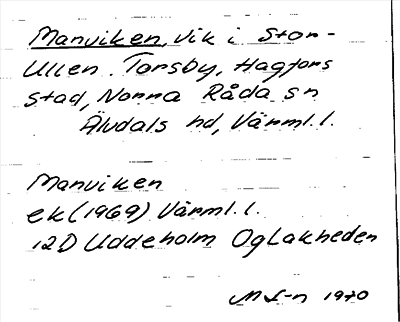 Manviken, vik i Stor-
Ullen. Torsby, Hagfors
stad, Norra Råda sn
Älvdals hd, Värml. l.
Manviken
ek (1969) Värml. l.
12D Uddeholm Oglakheden
M L-n 1970